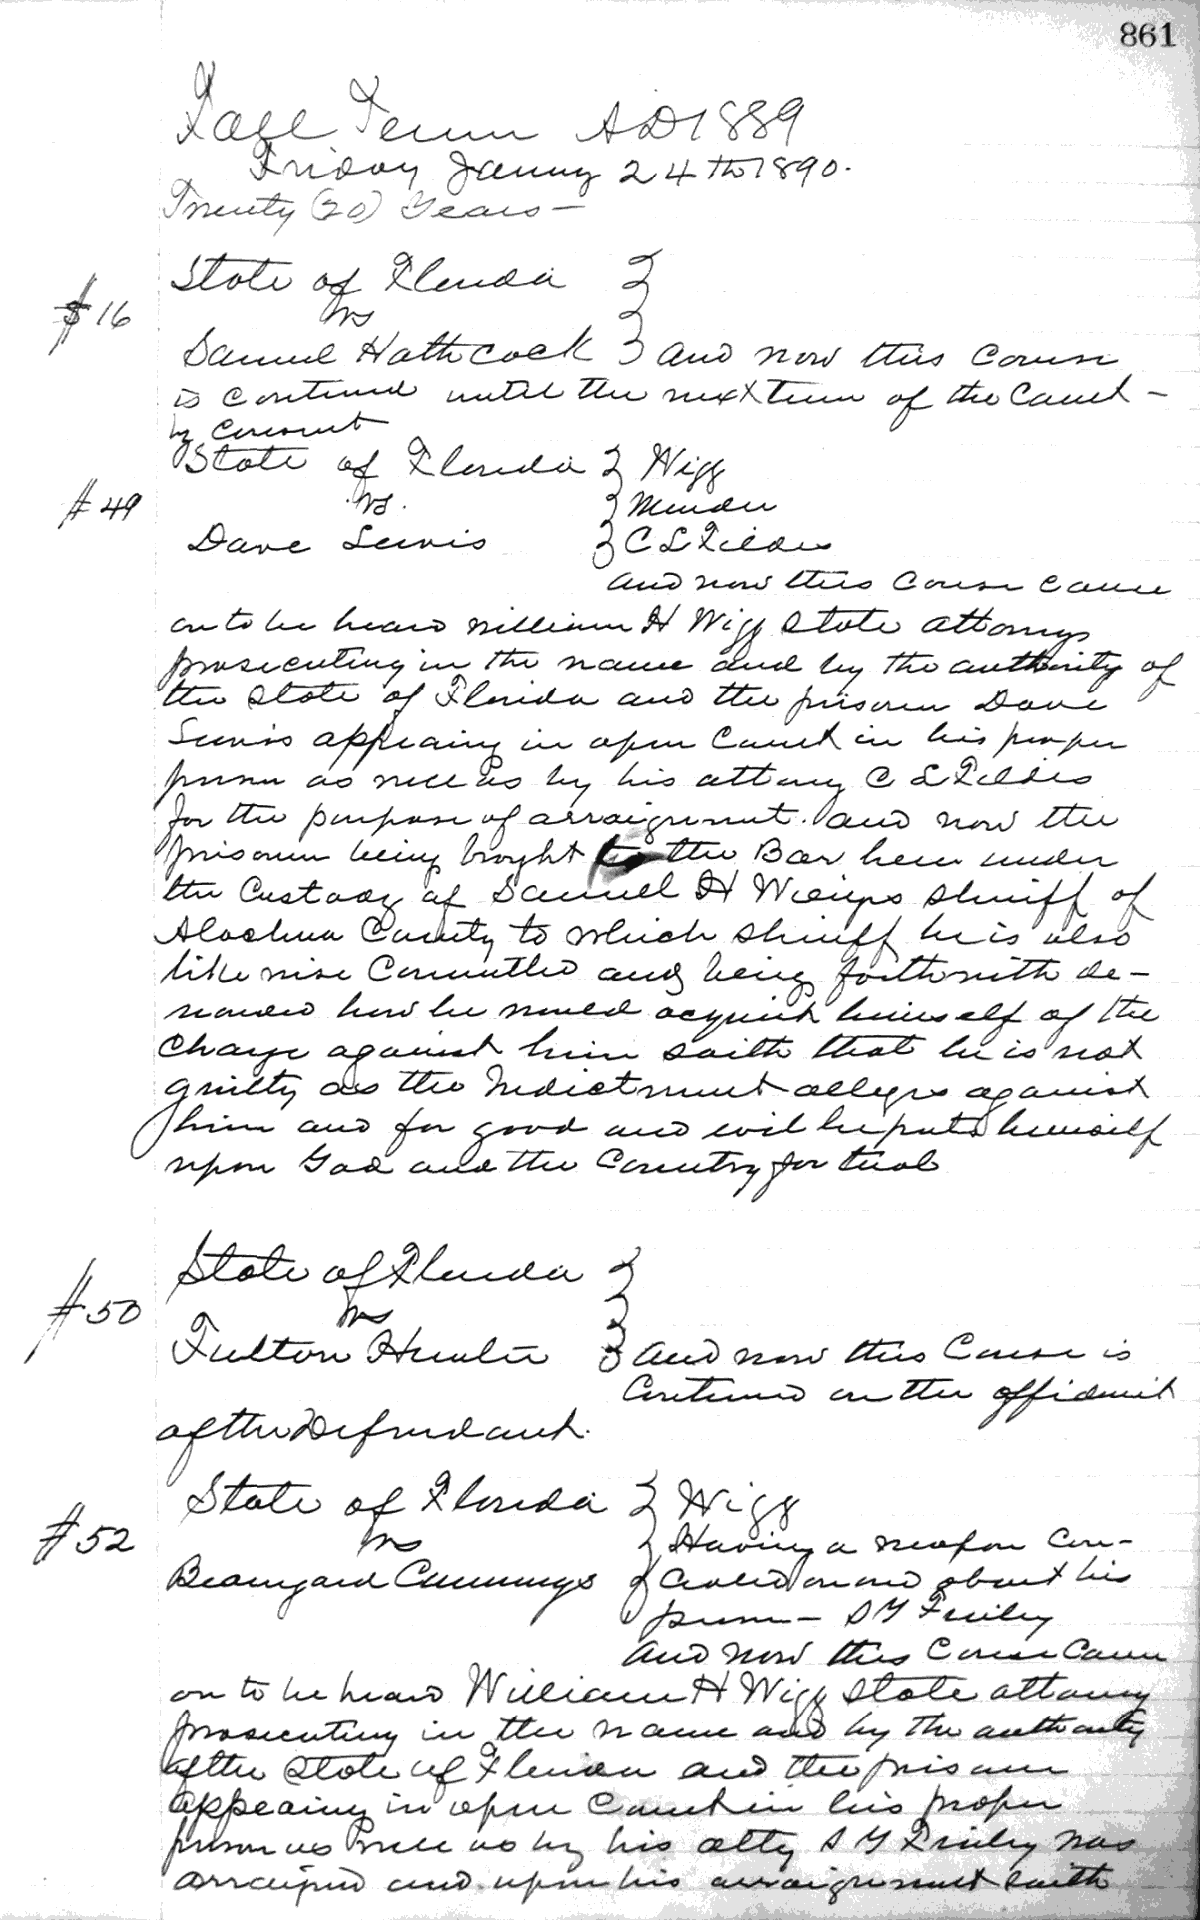 861
Fall Term AD 1889
Friday Janury 24th 1890.
Twenty (20) Years —
State of Florida
#16
vs
Samuel Hathcock } and now this Cause
is continued until the next term of the Court —
by consent
State of Florida } Wigg
#49
vs. } Murder
Dave Lewis } C L Fildes
and now this Cause came
on to be heard William H Wigg State Attorney
prosecuting in the name and by the authority of
the State of Florida and the prisoner Dave
Lewis appearing in open Court in his proper
person as well as by his attorney C L Fildes
for the purpose of arraignment. And now the
prisoner being brought to the Bar here under
the Custody of Samuel H Wienges Sheriff of
Alachua County to which Sheriff he is also
likewise Committed and being forthwith de-
manded how he would acquit himself of the
Charge against him saith that he is not
guilty as the Indictment alleges against
him and for good and evil he puts himself
upon God and the Country for trial
State of Florida
#50
vs
Fulton Hunter } and now this Cause is
Continued on the affidavit
of the Defendant.
State of Florida } Wigg
#52
vs } Having a weapon Con-
Beauregard Cummings } cealed on and about his
person — S Y Finley
and now this Cause Came
on to be heard William H Wigg State attorney
prosecuting in the name and by the authority
of the State of Florida and the prisoner
appearing in open Court in his proper
person as well as by his atty S Y Finley was
arraigned and upon his arraignment saith